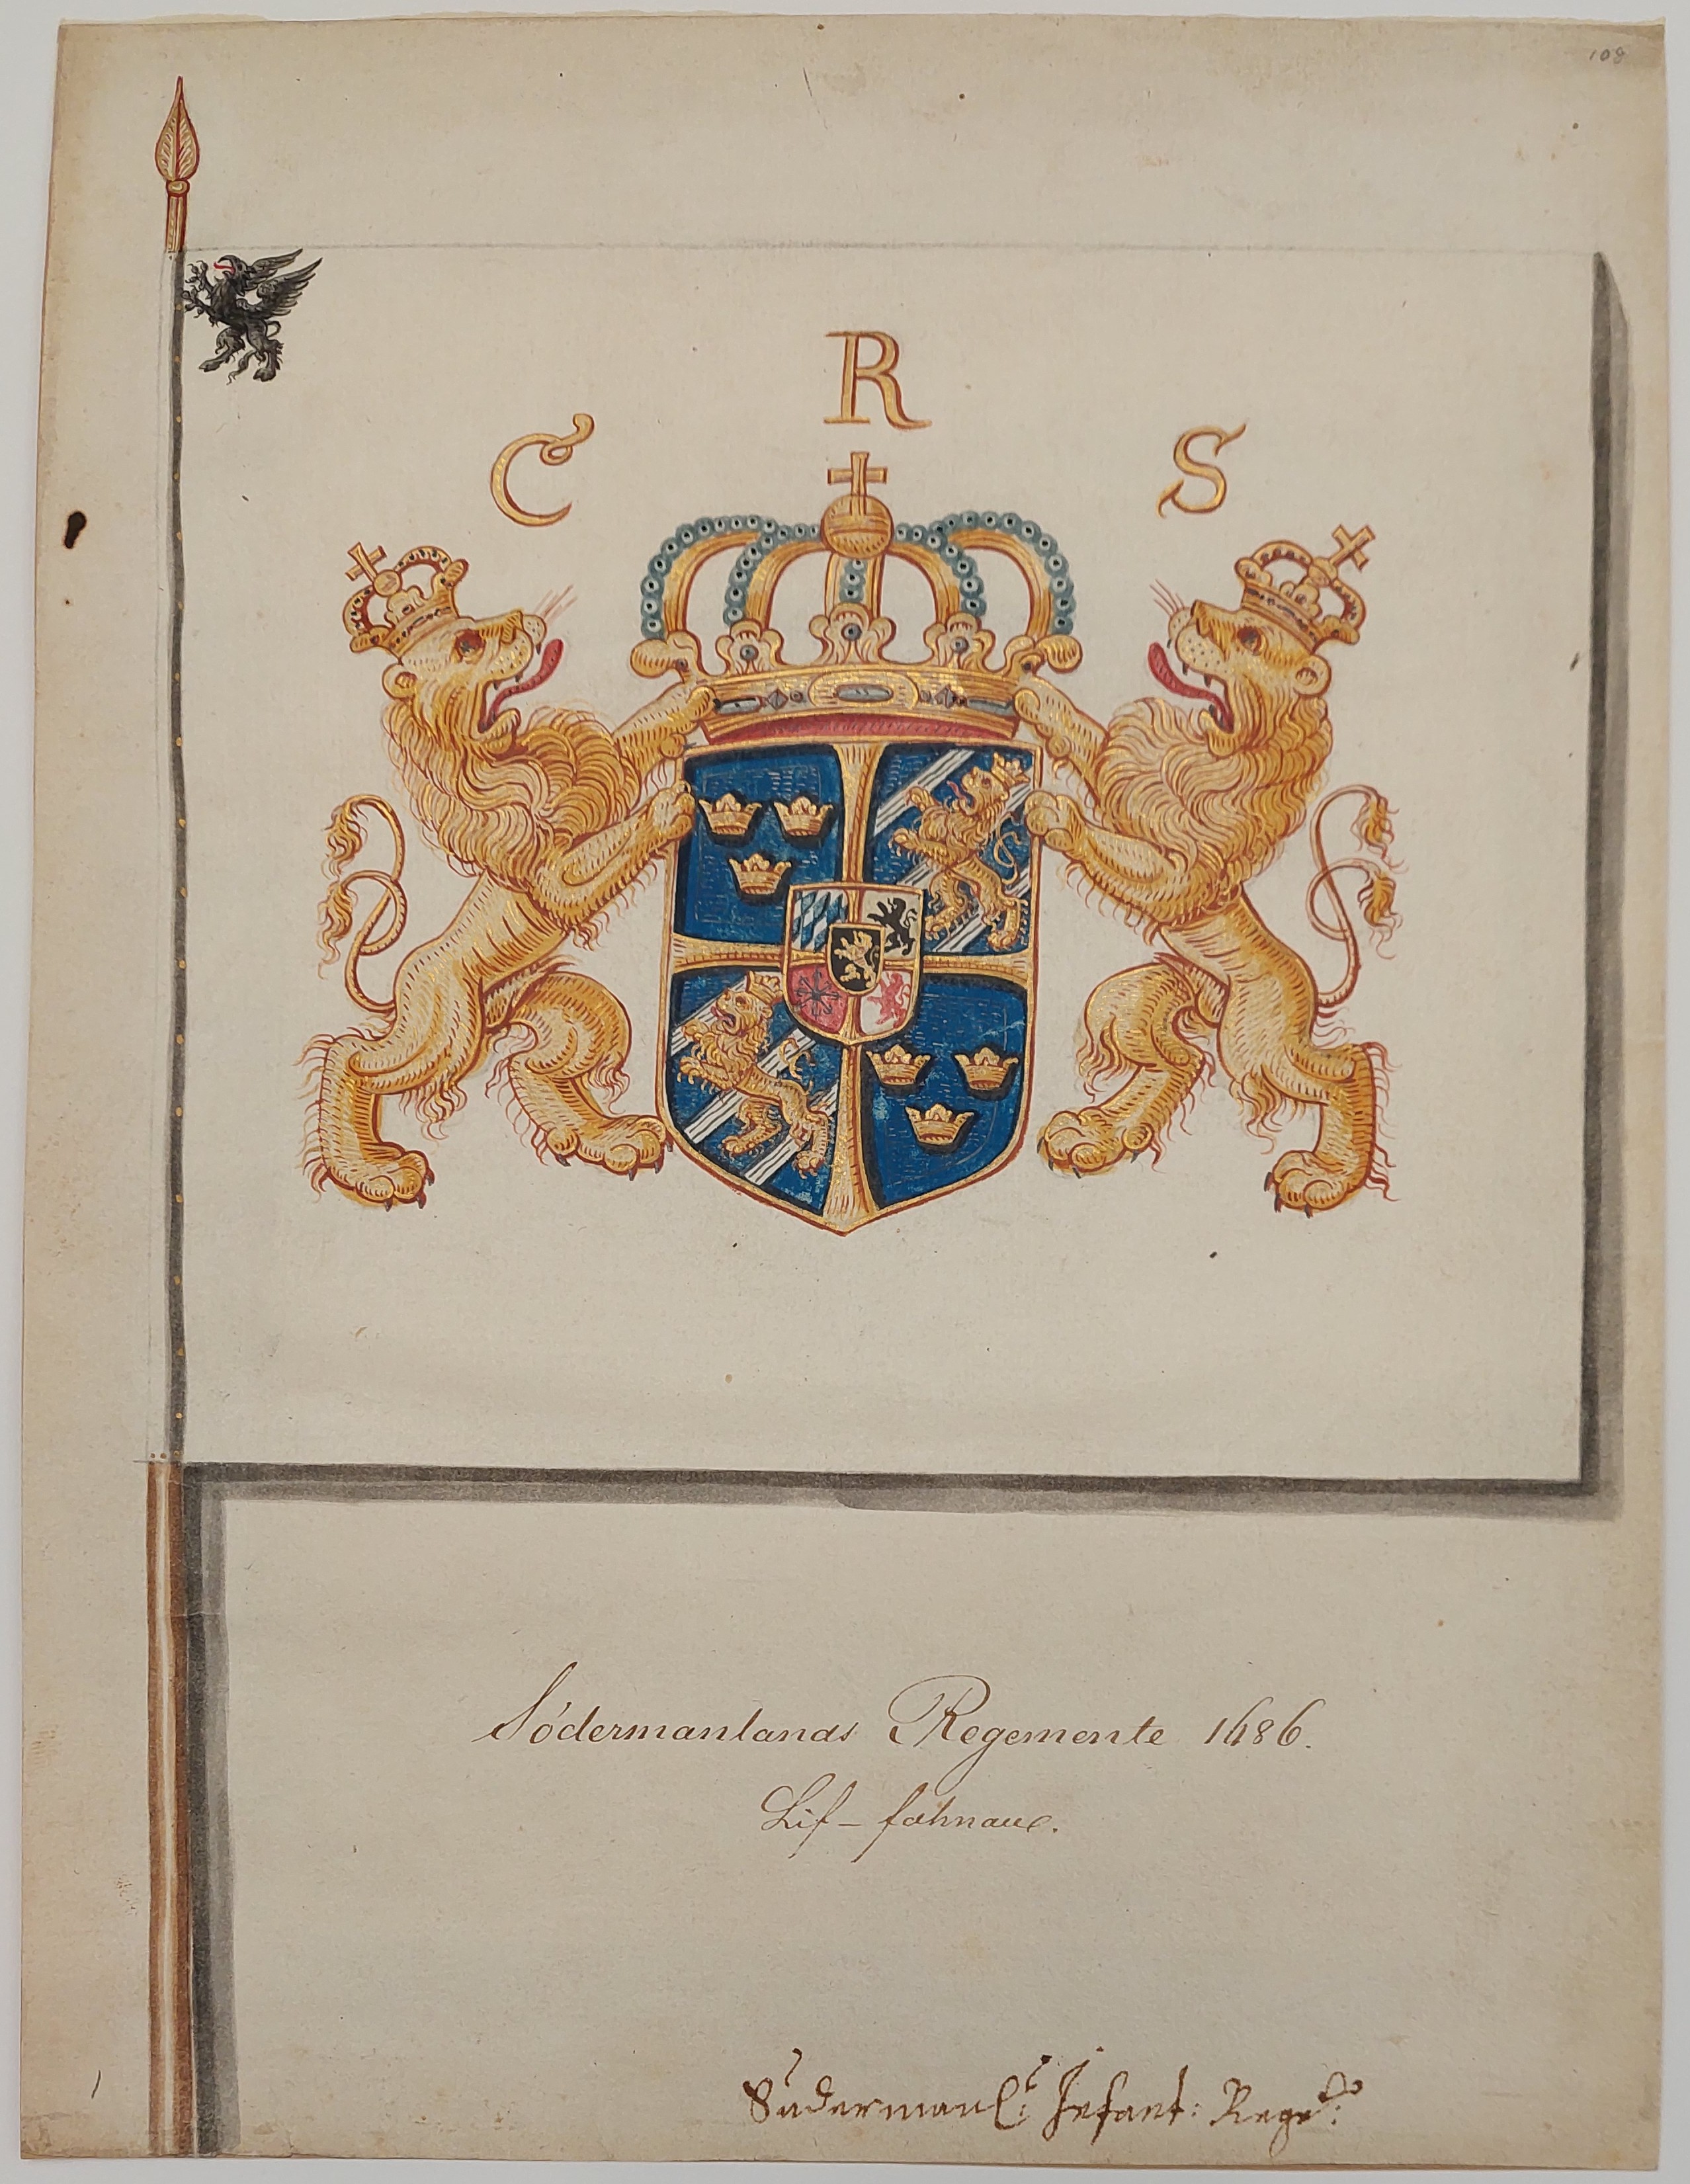 108
R
C S
Södermanlands Regemente 1686.
Lif-fahnan.
Südermanl: Infant: Reg:to: